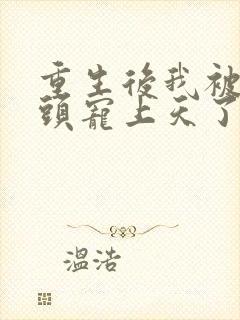 重生後我被
頭寵上天了
溫浩